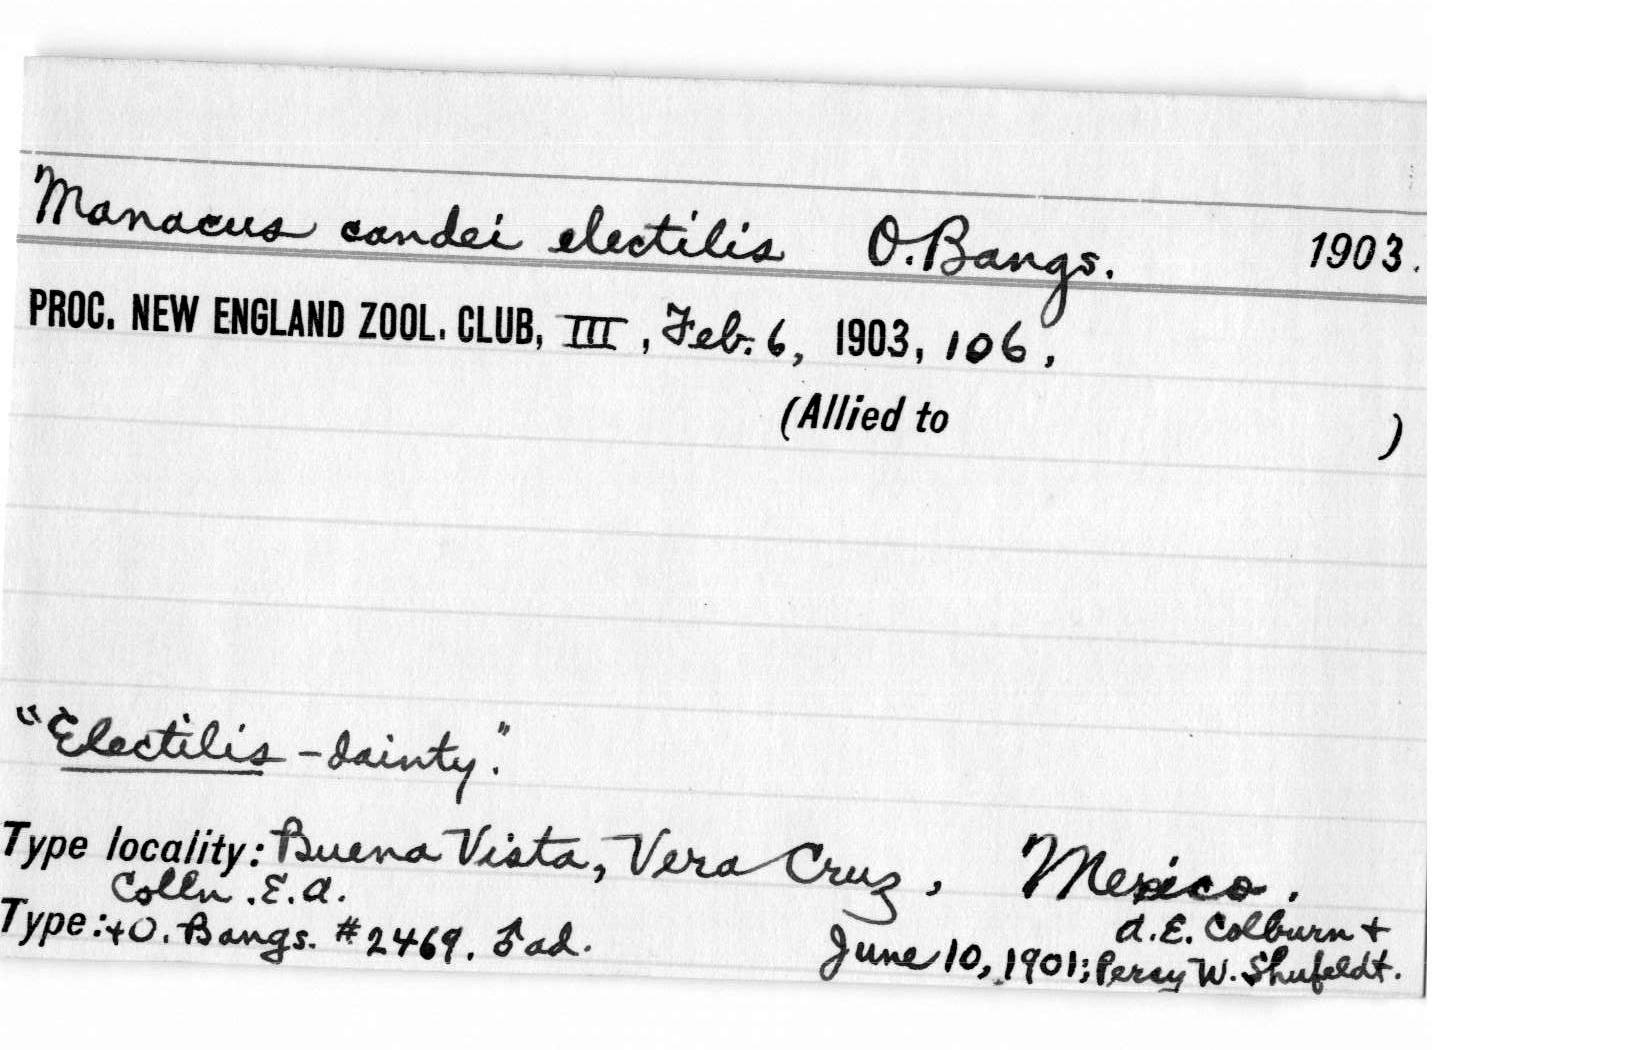 Manacus candei electilis O. Bangs. 1903.
PROC. NEW ENGLAND ZOOL. CLUB, III, Feb. 6, 1903, 106,
(Allied to )
"Electilis - dainty."
Type locality: Buena Vista, Vera Cruz, Mexico.
Colln. E.A.
Type: + O. Bangs. #2469. ♂ ad. June 10, 1901; A.E. Colburn +
Percy W. Shufeldt.